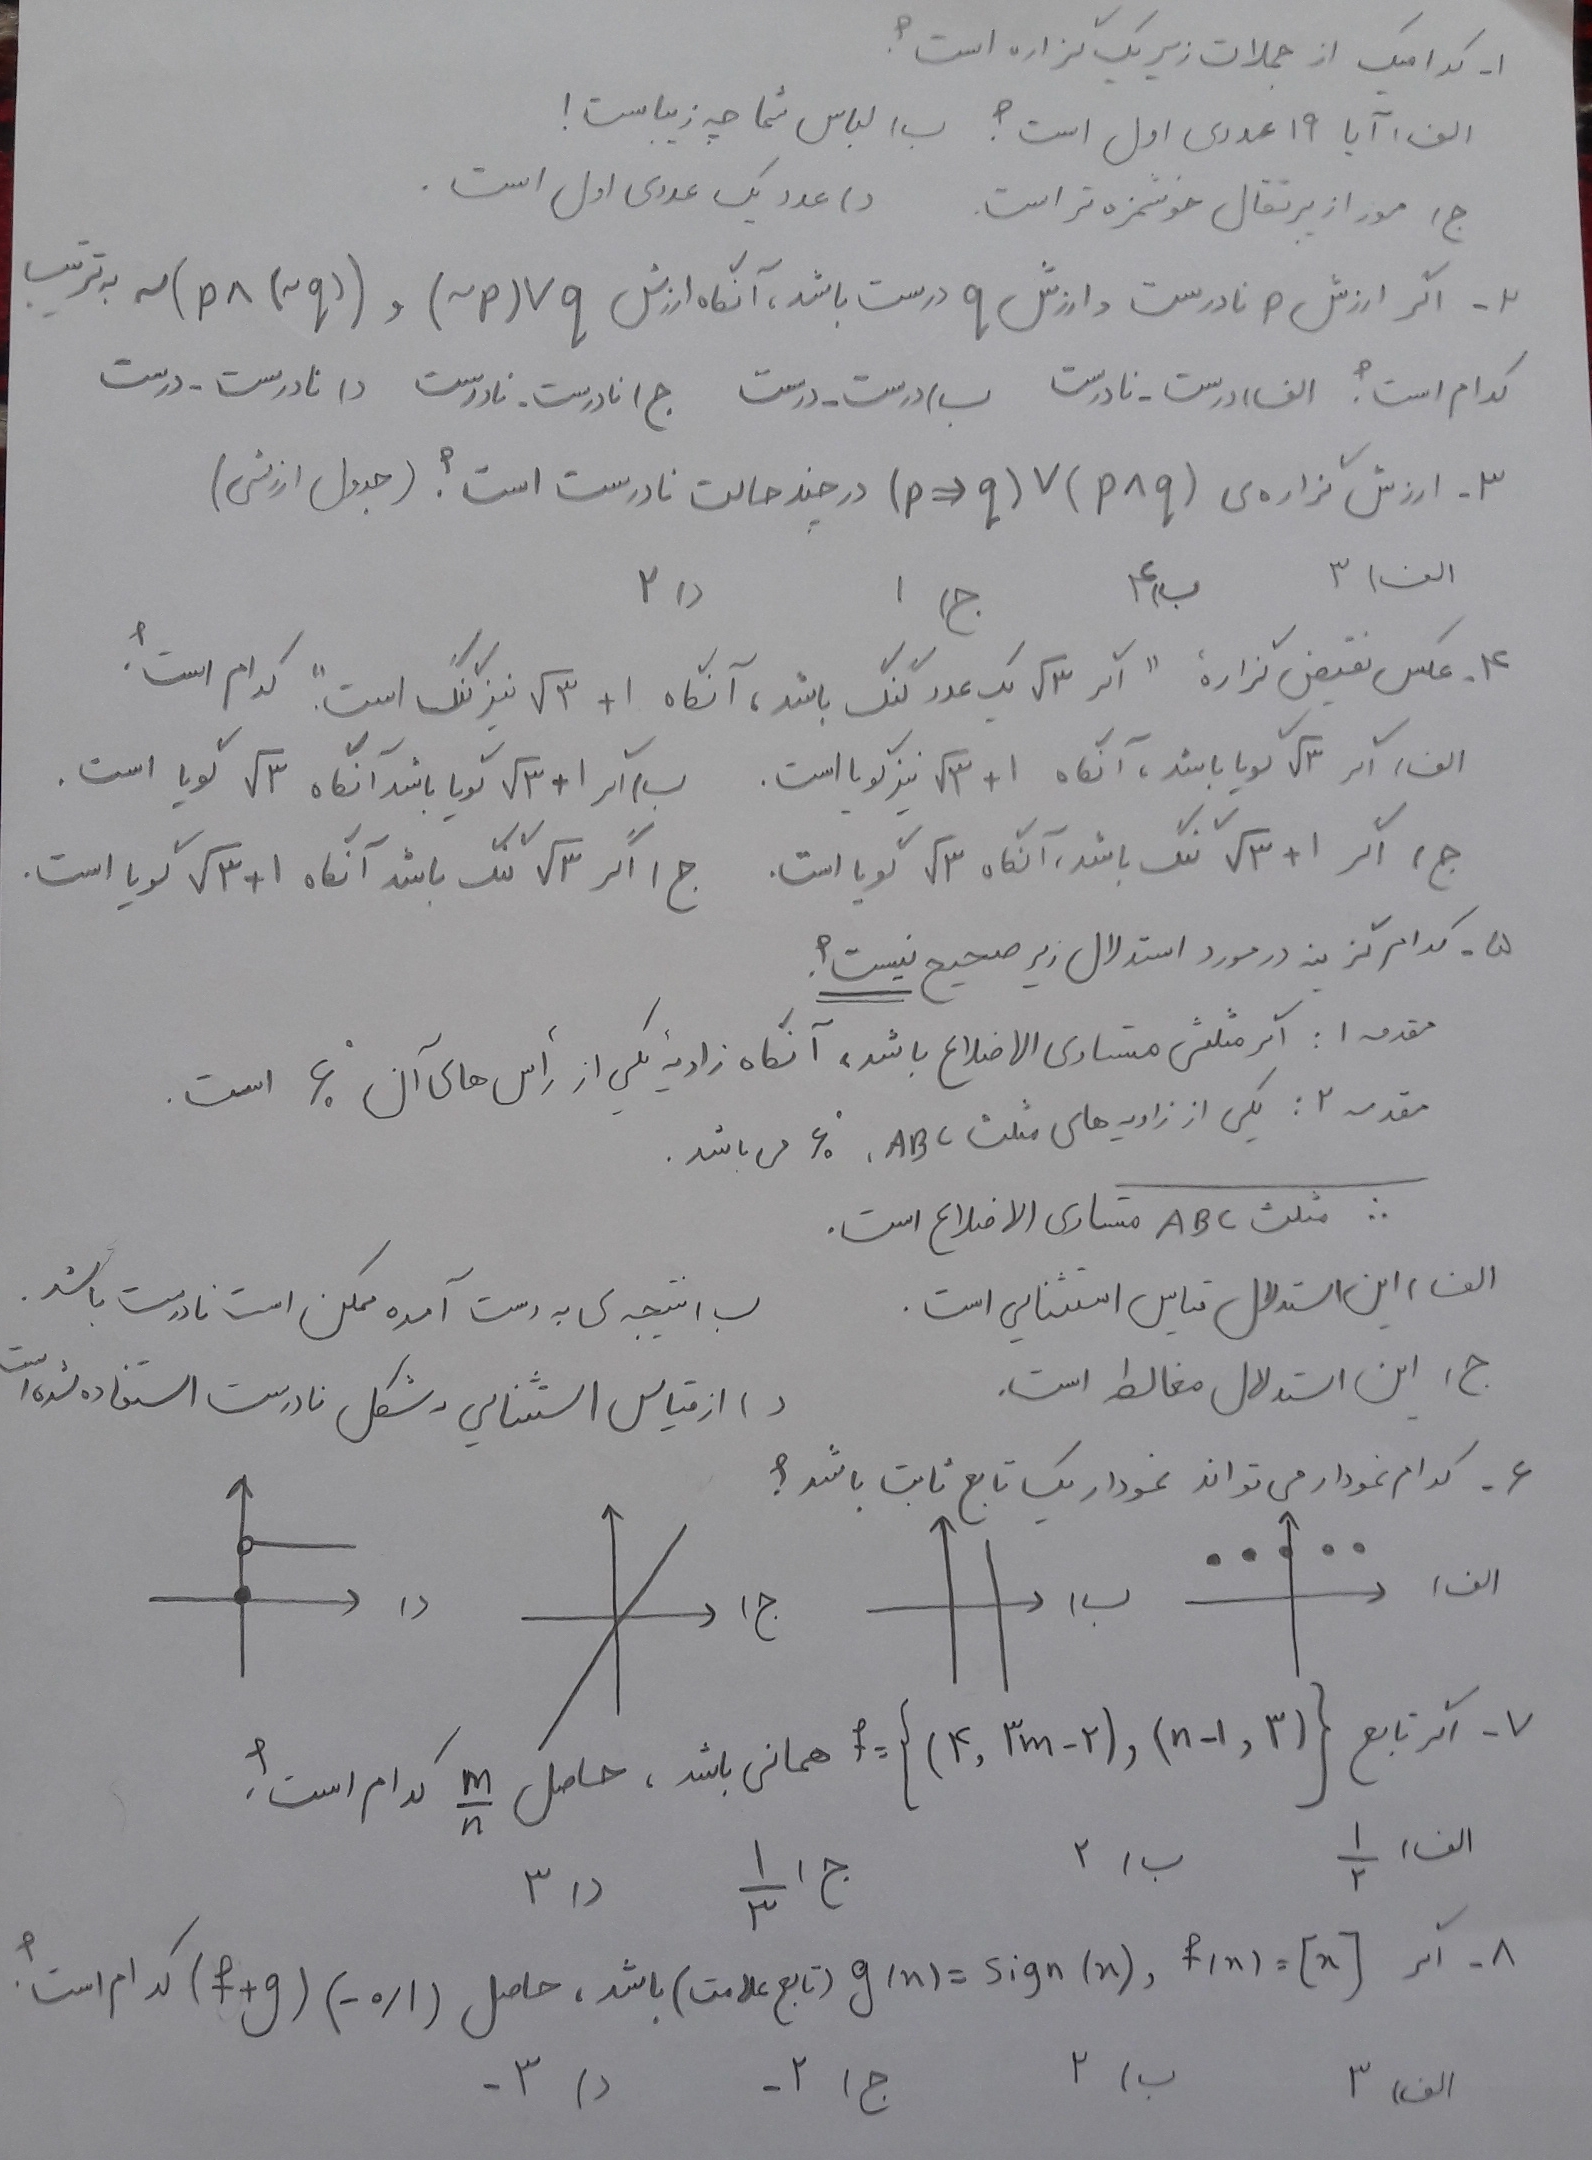 ۱- کدامیک از جملات زیر یک گزاره است؟
الف) آیا ۱۹ عددی اول است؟ ب) لباس شما چه زیباست!
ج) موز از پرتقال خوشمزه تر است. د) عدد یک عددی اول است.
۲- اگر ارزش p نادرست و ارزش q درست باشد، آنگاه ارزش (~p)∨q و ~(p∧(~q)) به ترتیب
کدام است؟ الف) درست-نادرست ب) درست-درست ج) نادرست-نادرست د) نادرست-درست
۳- ارزش گزاره‌ی (p⇒q)∨(p∧q) در چند حالت نادرست است؟ (جدول ارزش)
الف) ۳ ب) ۴ ج) ۱ د) ۲
۴- عکس نقیض گزارهٔ "اگر √۳ یک عدد گنگ باشد، آنگاه √۳+۱ نیز گنگ است." کدام است؟
الف) اگر √۳ گویا باشد، آنگاه √۳+۱ نیز گویا است. ب) اگر √۳+۱ گویا باشد آنگاه √۳ گویا است.
ج) اگر √۳+۱ گنگ باشد، آنگاه √۳ گویا است. ج) اگر √۳ گنگ باشد آنگاه √۳+۱ گویا است.
۵- کدام گزینه در مورد استدلال زیر صحیح نیست؟
مقدمه ۱: اگر مثلثی متساوی الاضلاع باشد، آنگاه زاویهٔ یکی از رأس های آن ۶۰° است.
مقدمه ۲: یکی از زاویه های مثلث ABC، ۶۰° می باشد.
∴ مثلث ABC متساوی الاضلاع است.
الف) این استدلال قیاس استثنایی است. ب) نتیجه‌ی به دست آمده ممکن است نادرست باشد.
ج) این استدلال مغالطه است. د) از قیاس استثنایی به شکل نادرست استفاده شده است
۶- کدام نمودار می تواند نمودار یک تابع ثابت باشد؟
الف) ب) ج) د)
۷- اگر تابع f={(۴, ۳m-۲), (n-۱, ۳)} همانی باشد، حاصل m/n کدام است؟
الف) ۱/۲ ب) ۲ ج) ۱/۳ د) ۳
۸- اگر f(n)=[n] و g(n)=sign(n) (تابع علامت) باشد، حاصل (f+g)(-۰/۱) کدام است؟
الف) ۳ ب) ۲ ج) -۲ د) -۳